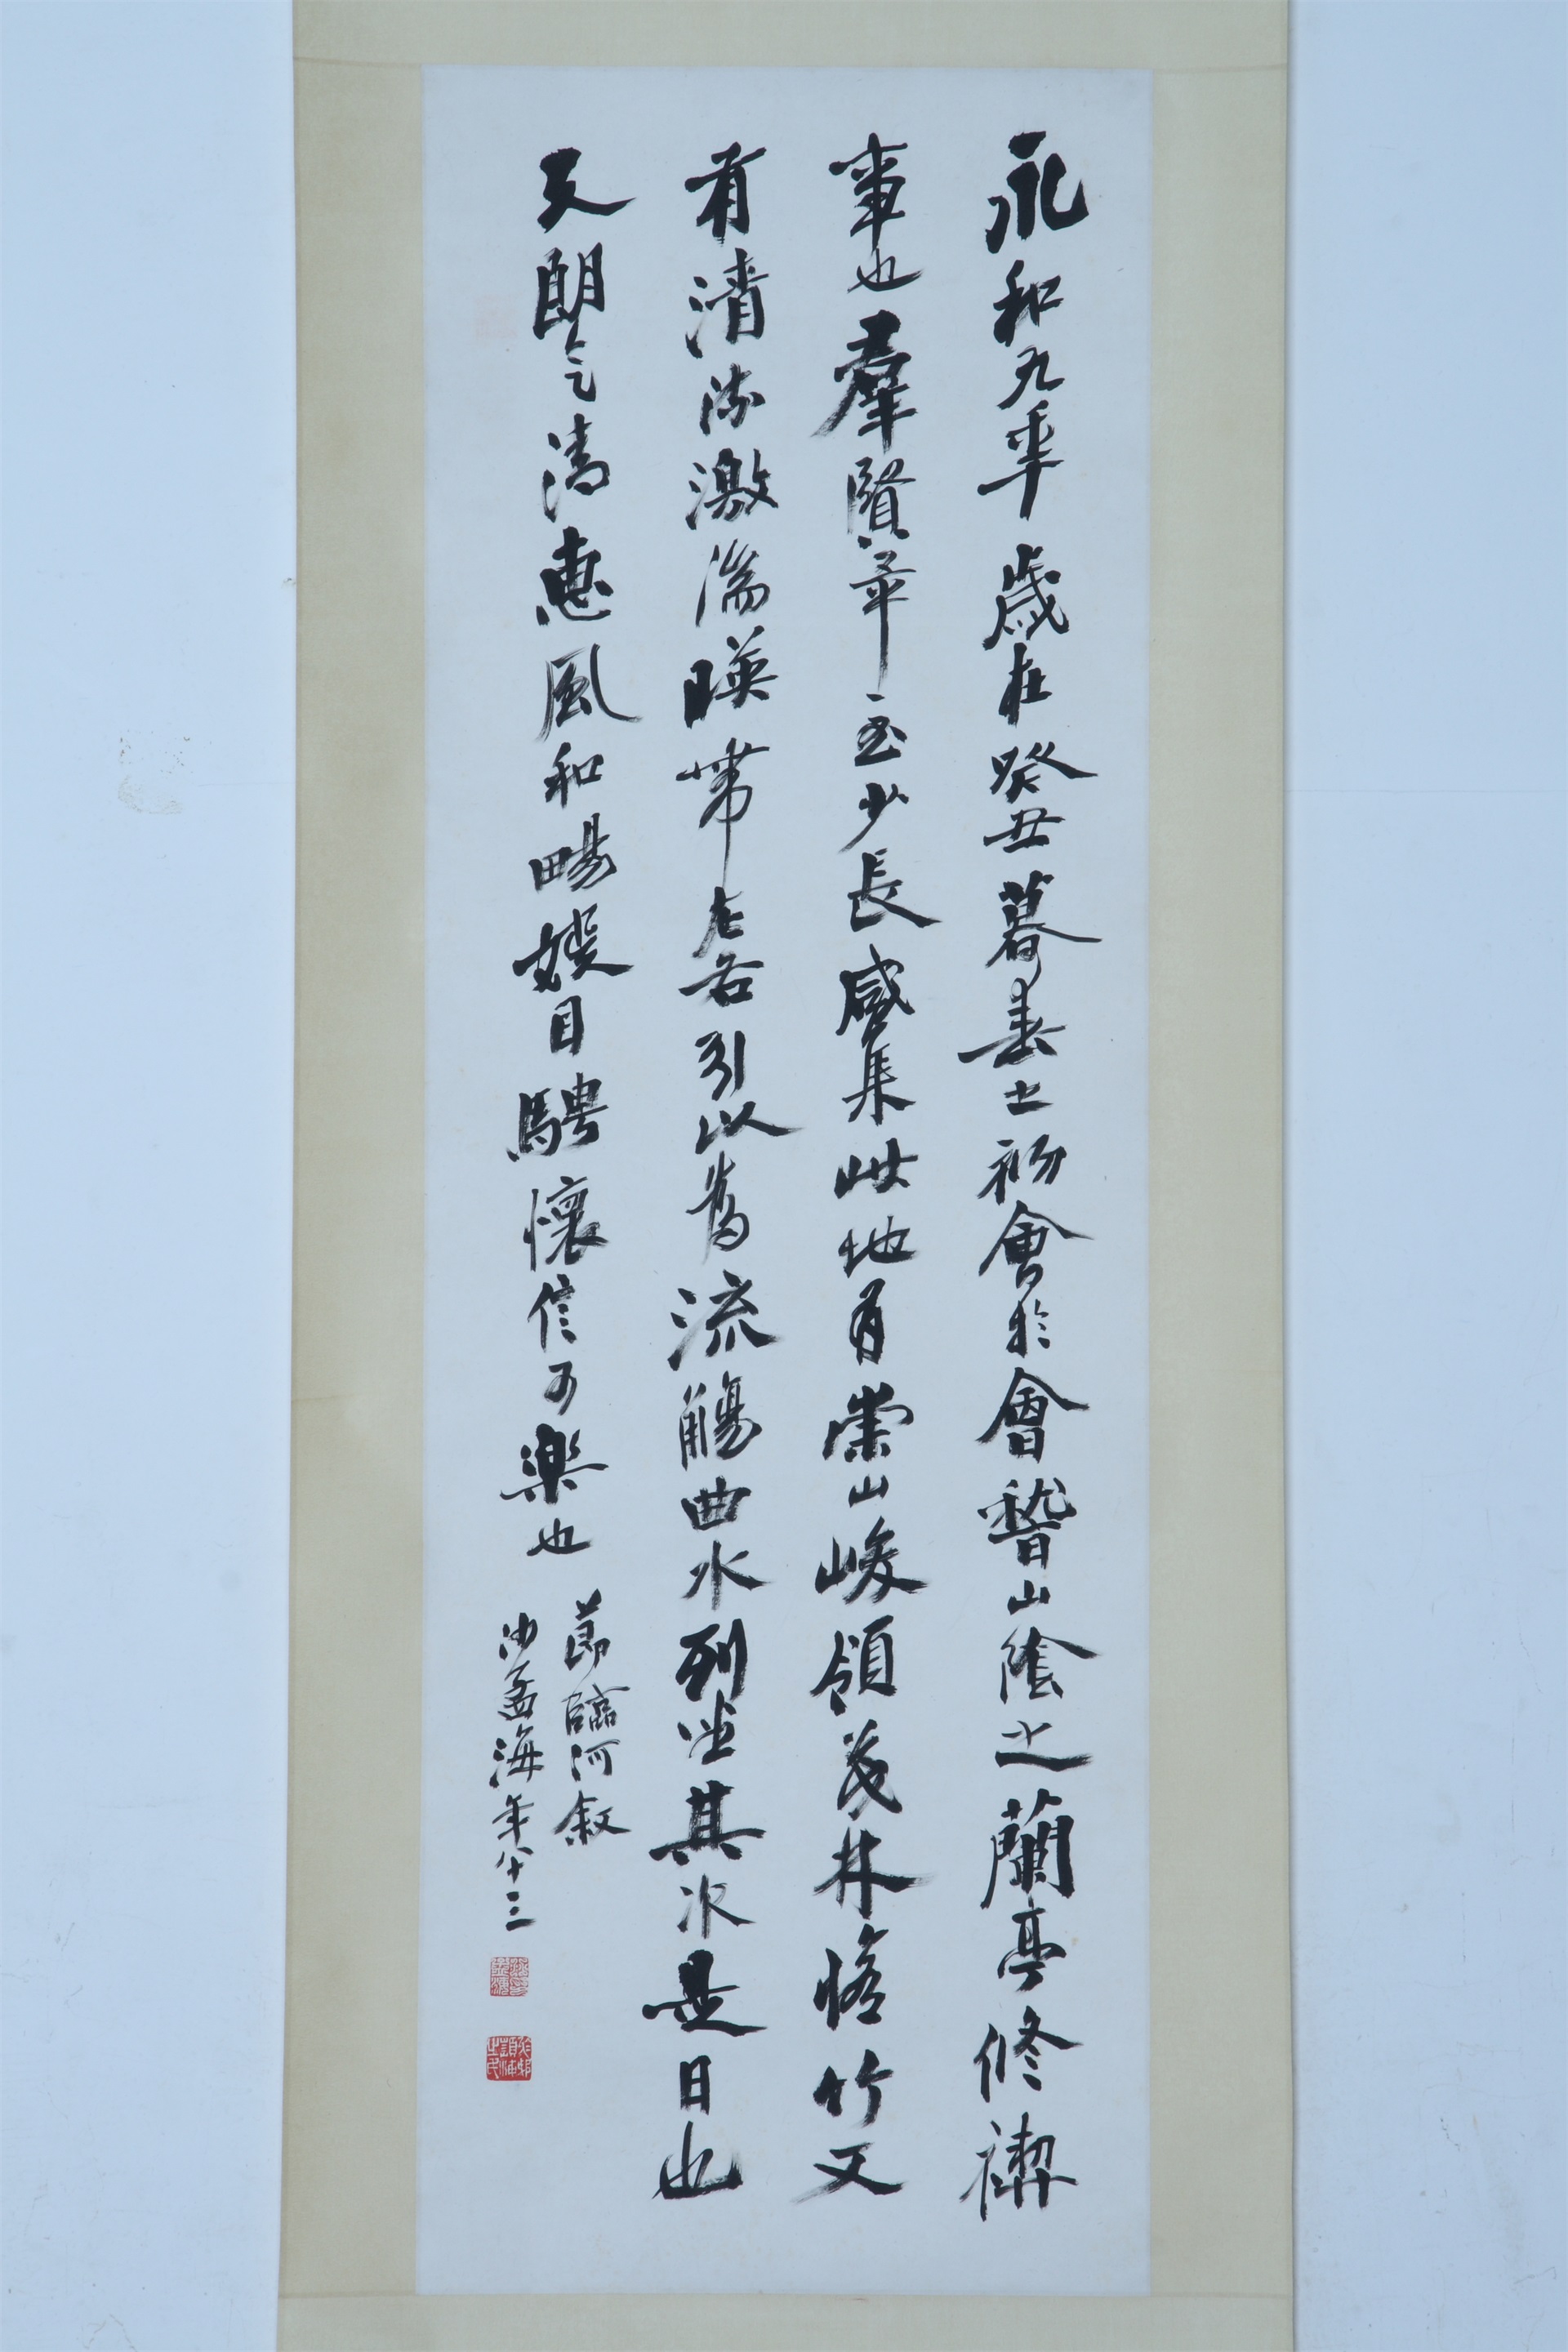 永和九年歲在癸丑暮春之初會於會稽山陰之蘭亭修禊
事也群賢畢至少長咸集此地有崇山峻領茂林脩竹又
有清流激湍暎帶左右引以為流觴曲水列坐其次是日也
天朗氣清惠風和暢娛目騁懷信可樂也
節臨河敘
沙孟海年八十三